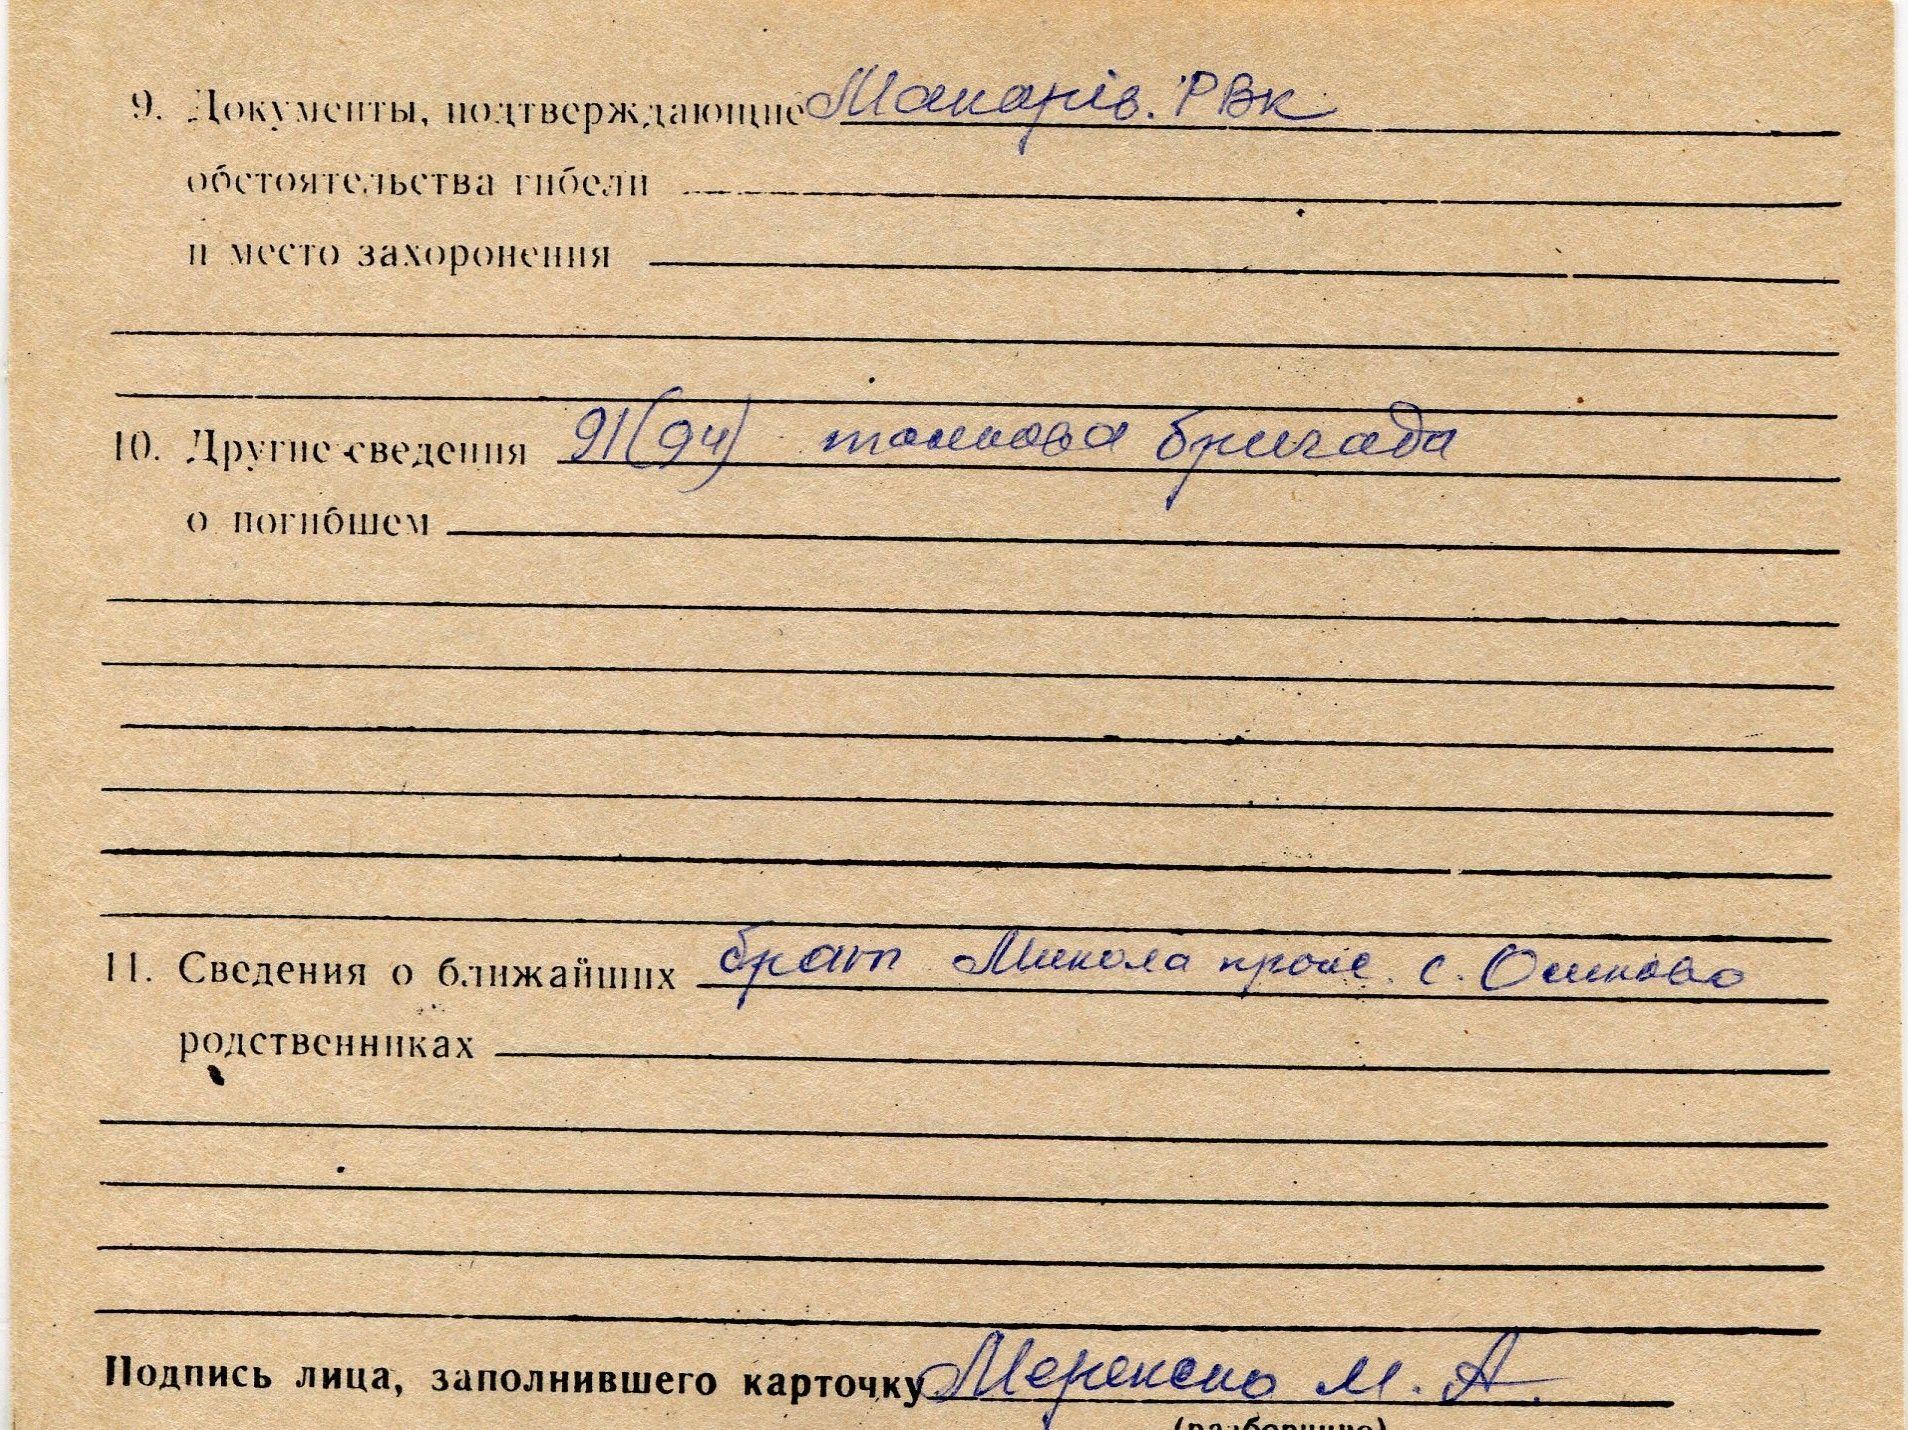 9. Документы, подтверждающие Макарів. РВК
обстоятельства гибели
и место захоронения
10. Другие сведения 91(94) танкова бригада
о погибшем
11. Сведения о ближайших брат Микола прож. с. Осикова
родственниках
Подпись лица, заполнившего карточку М. А.
(разборчиво)